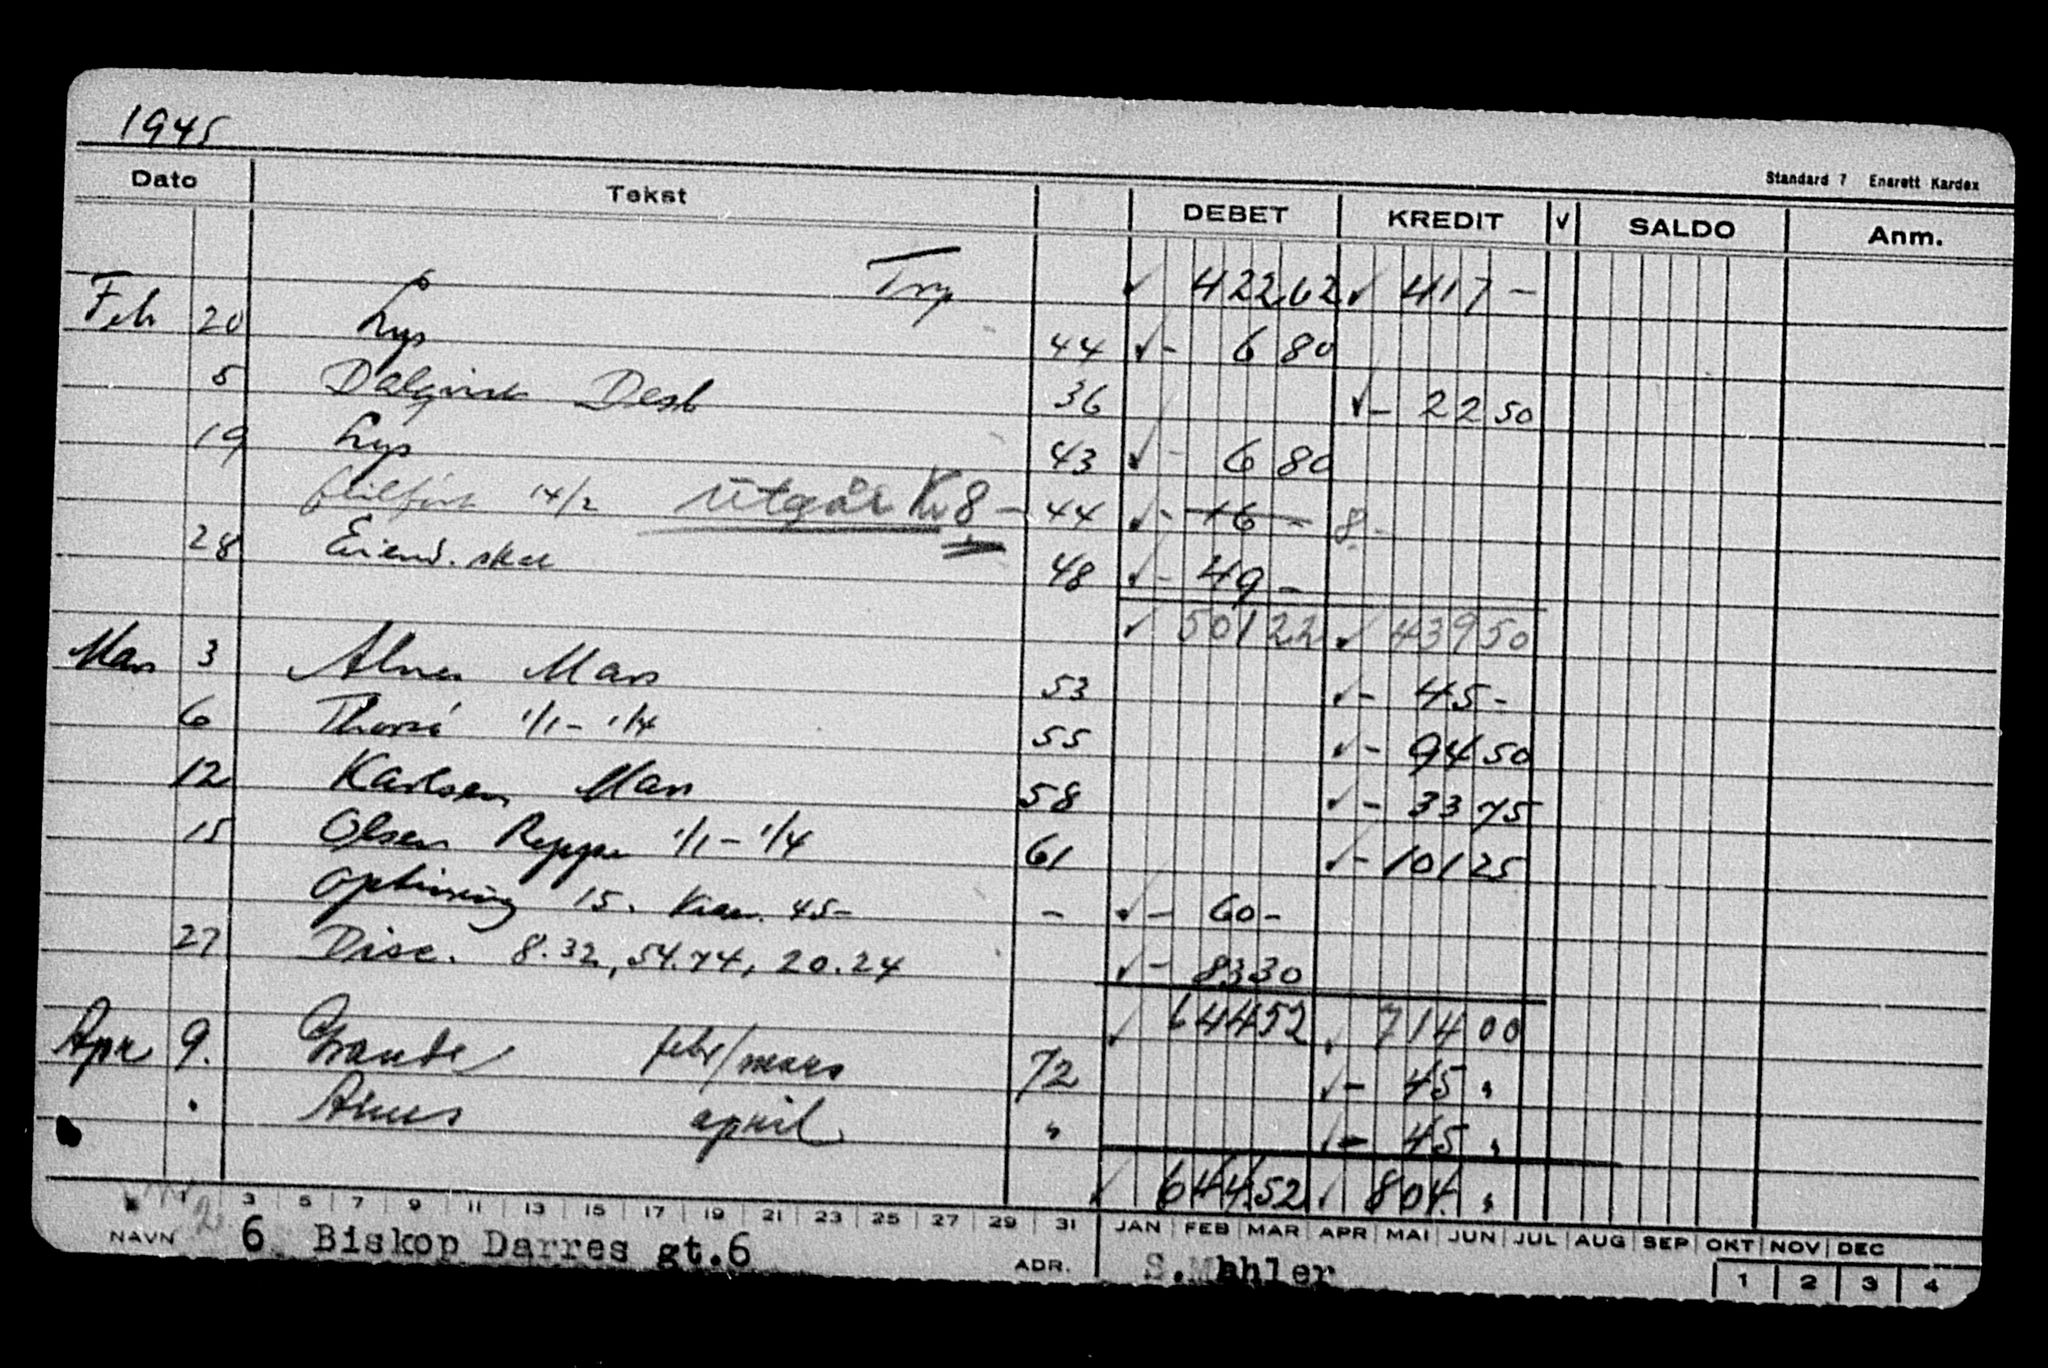 1945
Standard 7 Enerett Kardex
Dato Tekst DEBET KREDIT √ SALDO Anm.
✓ 422 62 ✓ 417 -
Feb 20 Lys 44 ✓ - 6 80
5 Dalqvist Desb 36 ✓ - 22 50
19 Lys 43 ✓ - 6 80
14/2 utgår Kr 8 - 44 ✓ - 16 - 8 -
28 Eiend. skat 48 ✓ - 49 -
✓ 501 22 ✓ 439 50
Mars 3 Mars 53 ✓ - 45 -
6 1/1 - 1/4 55 ✓ - 94 50
12 Karlsen Mars 58 ✓ - 33 75
15 Olsen Reppe 1/1 - 1/4 61 ✓ - 101 25
15. 45 - - ✓ - 60 -
27 Disc. 8.32, 54.74, 20.24 ✓ - 83 30
✓ 644 52 ✓ 714 00
Apr 9. Grande febr/mars 72 ✓ - 45 "
" april " ✓ - 45 "
✓ 644.52 ✓ 804. "
1 3 5 7 9 11 13 15 17 19 21 23 25 27 29 31 JAN FEB MAR APR MAI JUN JUL AUG SEP OKT NOV DEC
NAVN 6 Biskop Darres gt.6 ADR. S.Mahler
1 2 3 4